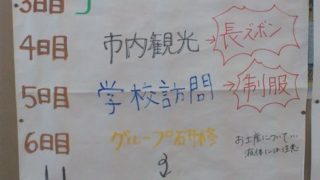 3日目
4日目 市内観光 → 長ズボン
5日目 学校訪問 → 制服
6日目 グループ研修 お土産について…
液体には注意